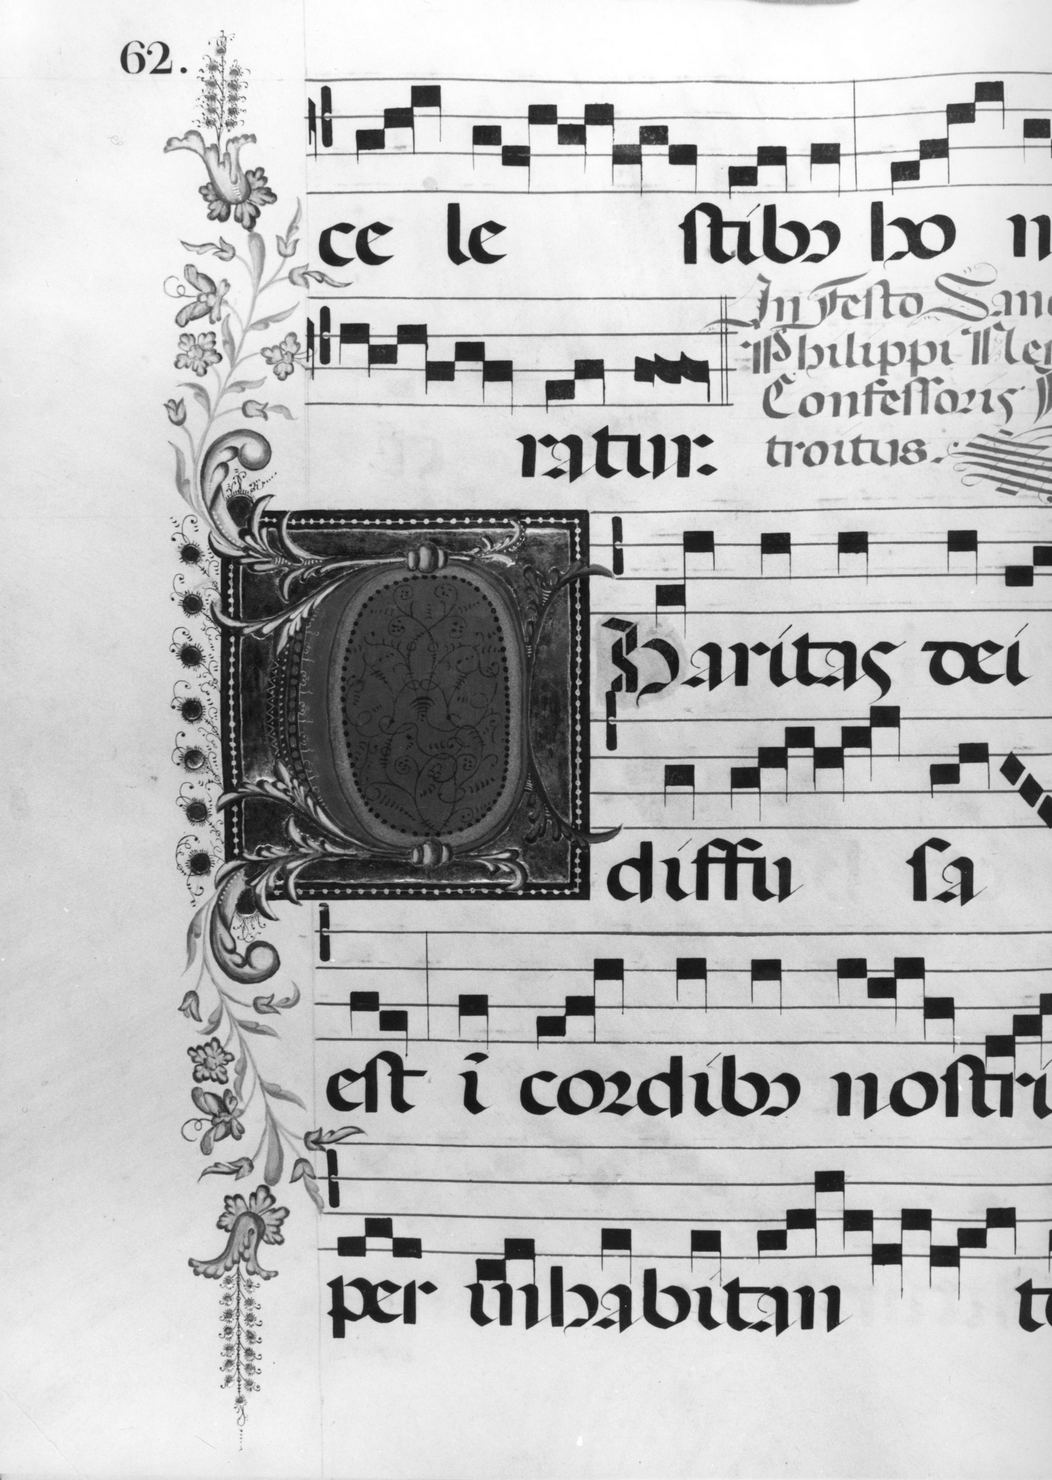 62.
ce le stibꝯ ho n
In Festo Sanc
Philippi Ner
Confessoris I
troitus.
ratur.
CHaritas dei
diffu sa
est ī cordibꝯ nostri
per inhabitan te